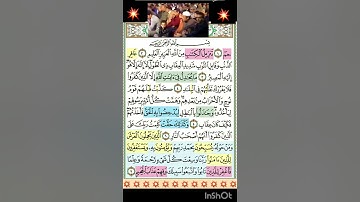 بِسْمِ اللَّهِ الرَّحْمَٰنِ الرَّحِيمِ
حمٓ تَنزِيلُ الْكِتَٰبِ مِنَ اللَّهِ الْعَزِيزِ الْعَلِيمِ غَافِرِ
الذَّنبِ وَقَابِلِ التَّوْبِ شَدِيدِ الْعِقَابِ ذِي الطَّوْلِ لَا إِلَٰهَ إِلَّا هُوَ
إِلَيْهِ الْمَصِيرُ مَا يُجَٰدِلُ فِي ءَايَٰتِ اللَّهِ إِلَّا الَّذِينَ كَفَرُوا
فَلَا يَغْرُرْكَ تَقَلُّبُهُمْ فِي الْبِلَٰدِ كَذَّبَتْ قَبْلَهُمْ قَوْمُ
نُوحٍ وَالْأَحْزَابُ مِنۢ بَعْدِهِمْ وَهَمَّتْ كُلُّ أُمَّةٍۭ بِرَسُولِهِمْ
لِيَأْخُذُوهُ وَجَٰدَلُوا بِالْبَٰطِلِ لِيُدْحِضُوا بِهِ الْحَقَّ فَأَخَذْتُهُمْ
فَكَيْفَ كَانَ عِقَابِ وَكَذَٰلِكَ حَقَّتْ كَلِمَتُ رَبِّكَ عَلَى
الَّذِينَ كَفَرُوا أَنَّهُمْ أَصْحَٰبُ النَّارِ الَّذِينَ يَحْمِلُونَ الْعَرْشَ
وَمَنْ حَوْلَهُ يُسَبِّحُونَ بِحَمْدِ رَبِّهِمْ وَيُؤْمِنُونَ بِهِ وَيَسْتَغْفِرُونَ
لِلَّذِينَ ءَامَنُوا رَبَّنَا وَسِعْتَ كُلَّ شَيْءٍ رَّحْمَةً وَعِلْمًا
فَاغْفِرْ لِلَّذِينَ تَابُوا وَاتَّبَعُوا سَبِيلَكَ وَقِهِمْ عَذَابَ الْجَحِيمِ
InShOt